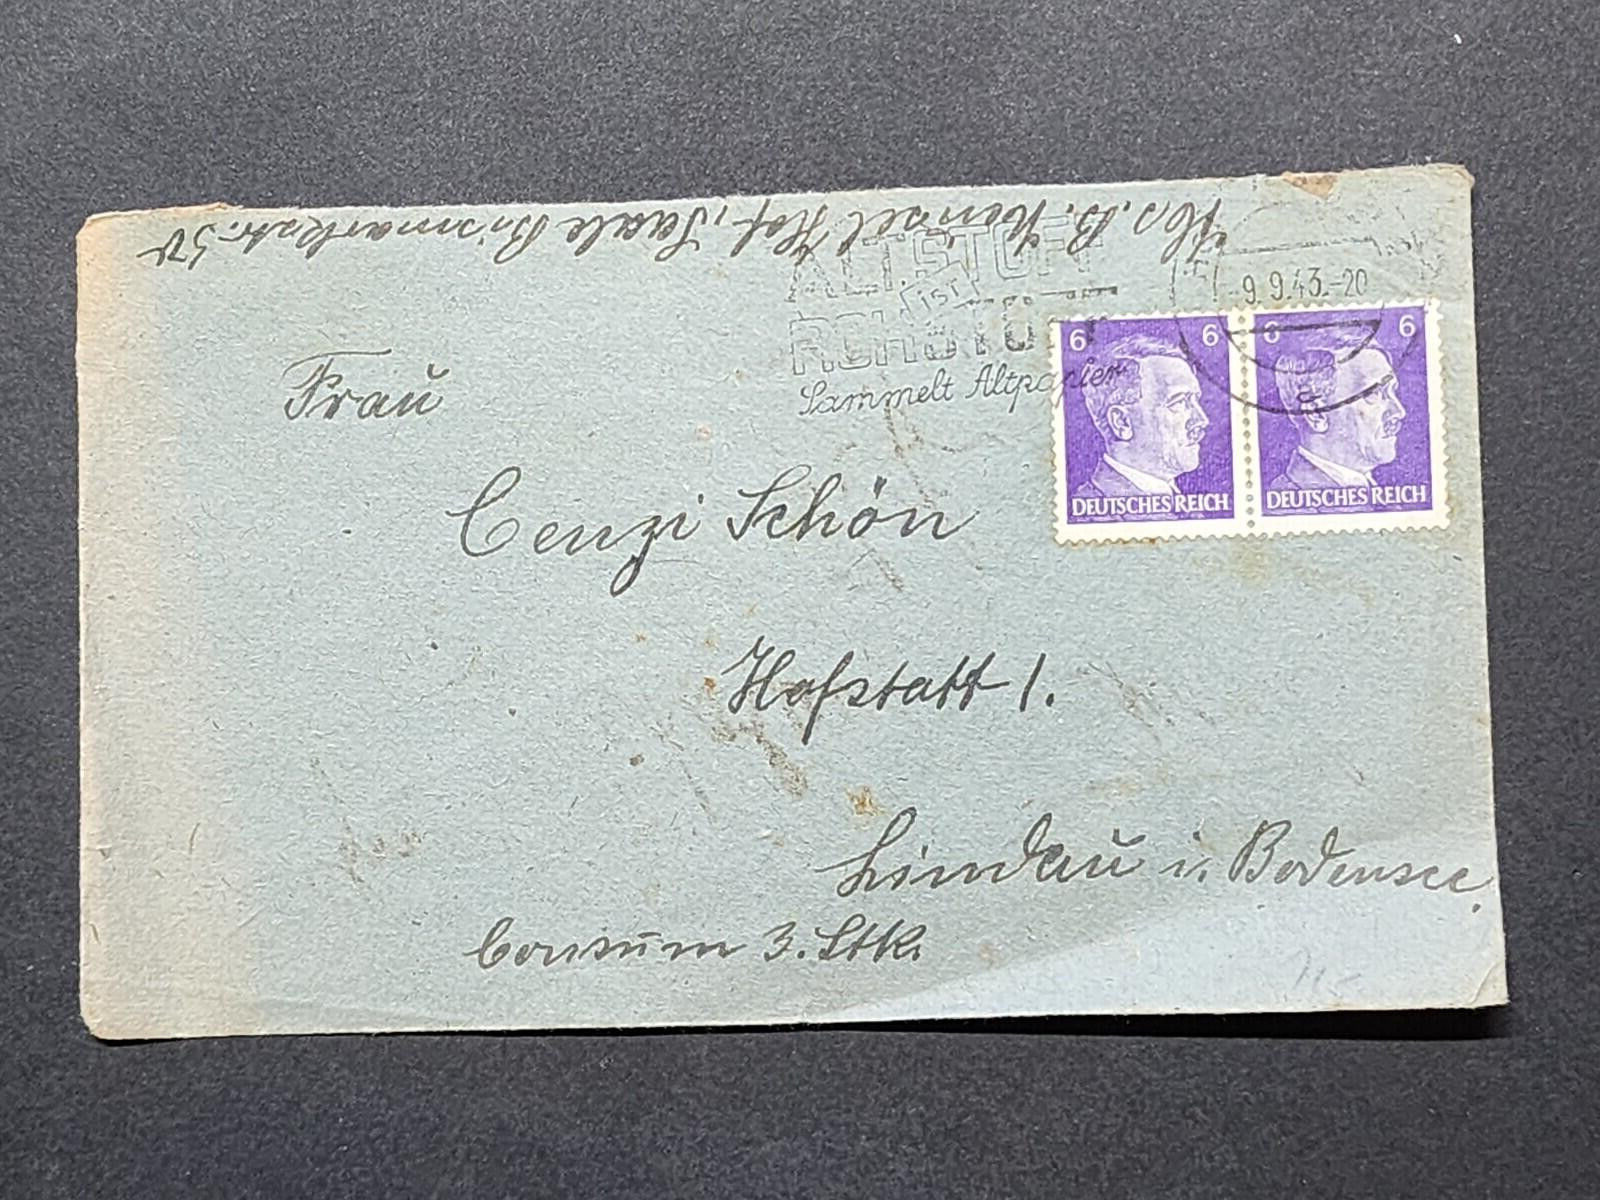 Abs. B. Hensel Hof, Saale Bismarckstr. 50
ALTSTOFF
ist
ROHSTOFF
Sammelt Altpapier
9.9.43.-20
6 6
DEUTSCHES REICH
6 6
DEUTSCHES REICH
Frau
Cenzi Schön
Hofstatt 1.
Lindau i. Bodensee.
Consum 3. Stk.